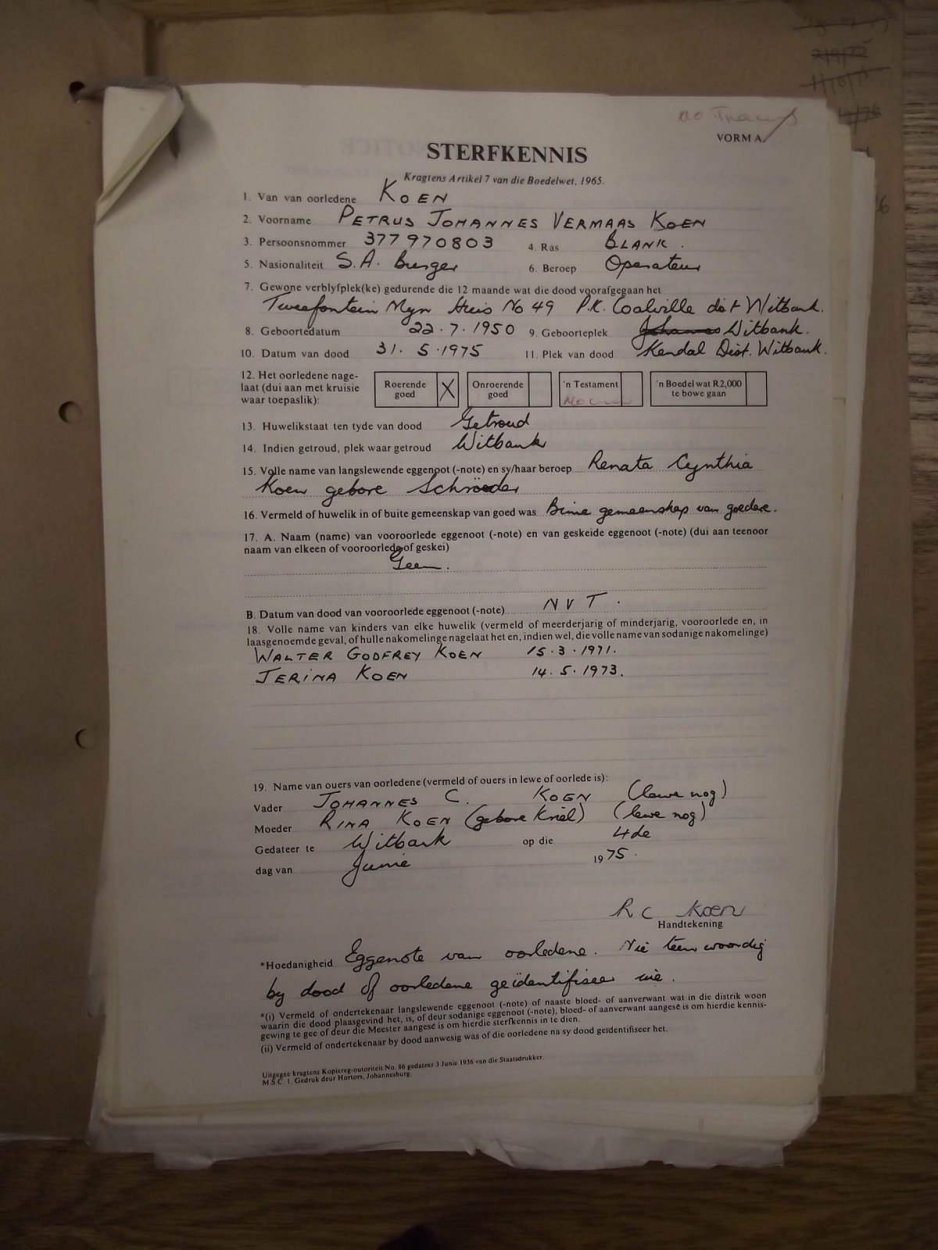 No Tracey
VORM A.
STERFKENNIS
Kragtens Artikel 7 van die Boedelwet, 1965.
1. Van van oorledene KOEN
2. Voorname PETRUS JOHANNES VERMAAS KOEN
3. Persoonsnommer 377970803 4. Ras BLANK.
5. Nasionaliteit S.A. Burger 6. Beroep Operateur
7. Gewone verblyfplek(ke) gedurende die 12 maande wat die dood voorafgegaan het
Tweefontein Myn Huis No 49 P.K. Coalville dist Witbank.
8. Geboortedatum 22.7.1950 9. Geboorteplek Witbank.
10. Datum van dood 31.5.1975 11. Plek van dood Kendal Dist. Witbank.
12. Het oorledene nage-
laat (dui aan met kruisie
waar toepaslik):
Roerende
goed X
Onroerende
goed
'n Testament
'n Boedel wat R2,000
te bowe gaan
13. Huwelikstaat ten tyde van dood Getroud
14. Indien getroud, plek waar getroud Witbank
15. Volle name van langslewende eggenoot (-note) en sy/haar beroep Renata Cynthia
Koen gebore Schröeder
16. Vermeld of huwelik in of buite gemeenskap van goed was Binne gemeenskap van goedere.
17. A. Naam (name) van vooroorlede eggenoot (-note) en van geskeide eggenoot (-note) (dui aan teenoor
naam van elkeen of vooroorlede of geskei)
Geen.
B. Datum van dood van vooroorlede eggenoot (-note) NVT.
18. Volle name van kinders van elke huwelik (vermeld of meerderjarig of minderjarig, vooroorlede en, in
laasgenoemde geval, of hulle nakomelinge nagelaat het en, indien wel, die volle name van sodanige nakomelinge)
WALTER GODFREY KOEN 15.3.1971.
JERINA KOEN 14.5.1973.
19. Name van ouers van oorledene (vermeld of ouers in lewe of oorlede is):
Vader JOHANNES C. KOEN (lewe nog)
Moeder RINA KOEN (gebore Kriel) (lewe nog)
Gedateer te Witbank op die 4de
dag van Junie 1975.
R C Koen
Handtekening
*Hoedanigheid Eggenote van oorledene. Nie teenwoordig
by dood of oorledene geïdentifiseer nie.
*(i) Vermeld of ondertekenaar langslewende eggenoot (-note) of naaste bloed- of aanverwant wat in die distrik woon
waarin die dood plaasgevind het, is, of deur sodanige eggenoot (-note), bloed- of aanverwant aangesê is om hierdie kennis-
gewing te gee of deur die Meester aangesê is om hierdie sterfkennis in te dien.
(ii) Vermeld of ondertekenaar by dood aanwesig was of die oorledene na sy dood geïdentifiseer het.
Uitgegee kragtens Kopiereg-outoriteit No. 86 gedateer 3 Junie 1936 van die Staatsdrukker.
M.S.C. 1. Gedruk deur Hortors, Johannesburg.